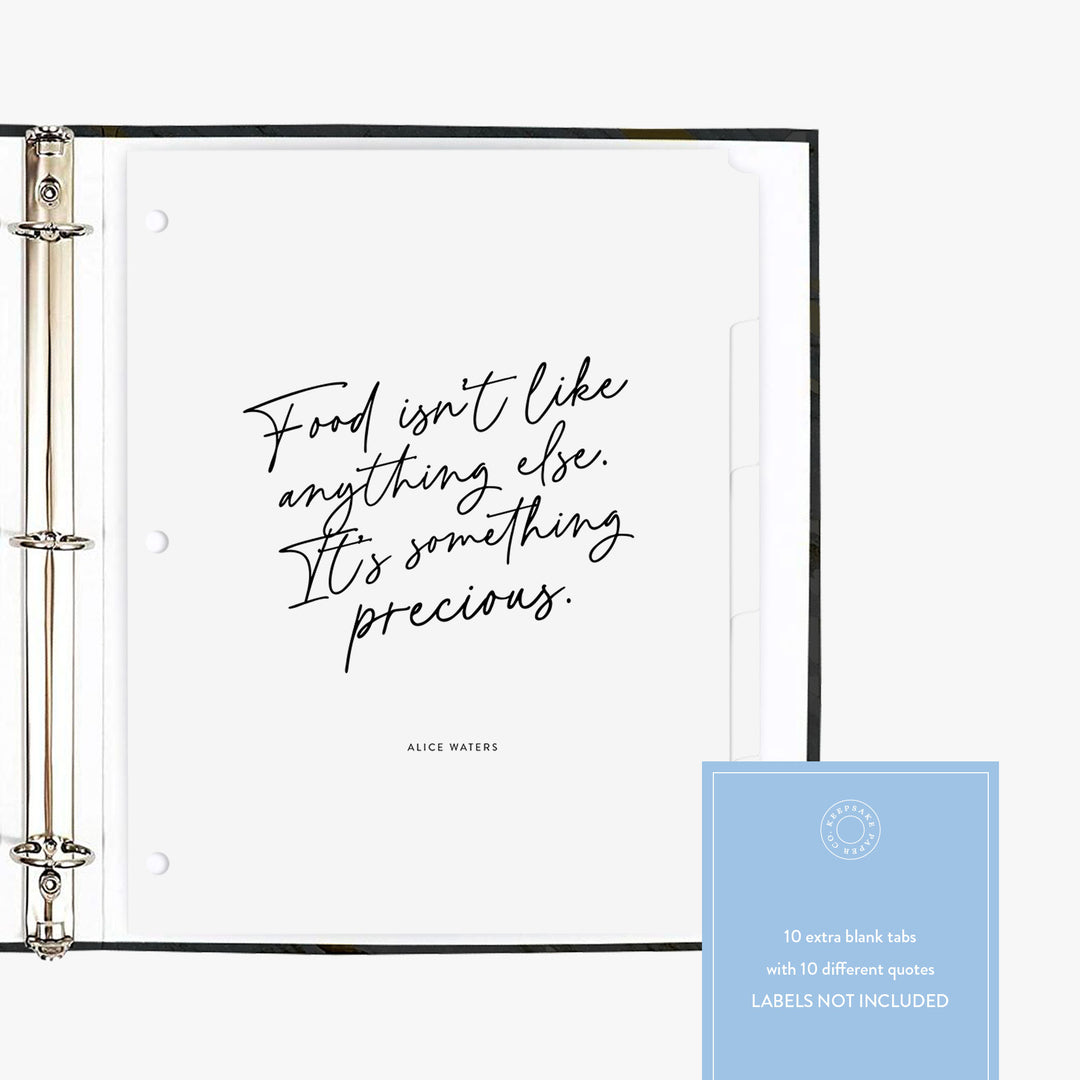 Food isn't like
anything else.
It's something
precious.
ALICE WATERS
KEEPSAKE PAPER CO.
10 extra blank tabs
with 10 different quotes
LABELS NOT INCLUDED